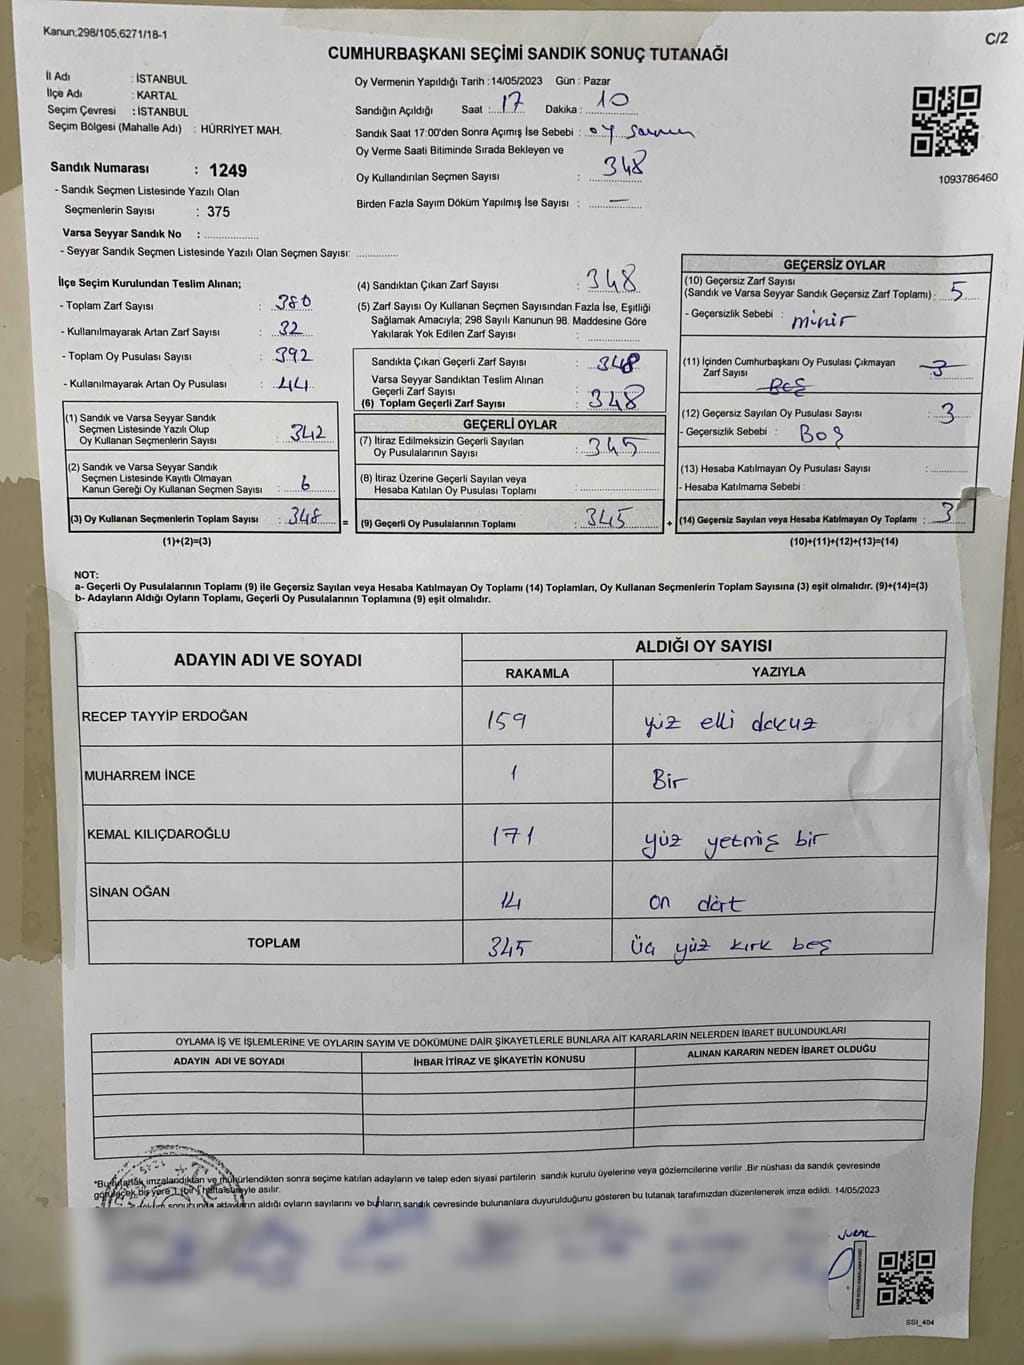 Kanun;298/105,6271/18-1
C/2
CUMHURBAŞKANI SEÇİMİ SANDIK SONUÇ TUTANAĞI
İl Adı : İSTANBUL
İlçe Adı : KARTAL
Seçim Çevresi : İSTANBUL
Seçim Bölgesi (Mahalle Adı) : HÜRRİYET MAH.
Sandık Numarası : 1249
- Sandık Seçmen Listesinde Yazılı Olan
Seçmenlerin Sayısı : 375
Varsa Seyyar Sandık No : ................
- Seyyar Sandık Seçmen Listesinde Yazılı Olan Seçmen Sayısı: .............
Oy Vermenin Yapıldığı Tarih :14/05/2023 Gün : Pazar
Sandığın Açıldığı Saat : 17 Dakika : 10
Sandık Saat 17:00'den Sonra Açımış İse Sebebi : oy sayımı
Oy Verme Saati Bitiminde Sırada Bekleyen ve
Oy Kullandırılan Seçmen Sayısı : 348
Birden Fazla Sayım Döküm Yapılmış İse Sayısı : —
1093786460
İlçe Seçim Kurulundan Teslim Alınan;
- Toplam Zarf Sayısı : 380
- Kullanılmayarak Artan Zarf Sayısı : 32
- Toplam Oy Pusulası Sayısı : 392
- Kullanılmayarak Artan Oy Pusulası : 44
(1) Sandık ve Varsa Seyyar Sandık
Seçmen Listesinde Yazılı Olup
Oy Kullanan Seçmenlerin Sayısı : 342
(2) Sandık ve Varsa Seyyar Sandık
Seçmen Listesinde Kayıtlı Olmayan
Kanun Gereği Oy Kullanan Seçmen Sayısı : 6
(3) Oy Kullanan Seçmenlerin Toplam Sayısı : 348 =
(1)+(2)=(3)
(4) Sandıktan Çıkan Zarf Sayısı : 348
(5) Zarf Sayısı Oy Kullanan Seçmen Sayısından Fazla İse, Eşitliği
Sağlamak Amacıyla; 298 Sayılı Kanunun 98. Maddesine Göre
Yakılarak Yok Edilen Zarf Sayısı : ................
Sandıkta Çıkan Geçerli Zarf Sayısı : 348
Varsa Seyyar Sandıktan Teslim Alınan
Geçerli Zarf Sayısı
(6) Toplam Geçerli Zarf Sayısı : 348
GEÇERLİ OYLAR
(7) İtiraz Edilmeksizin Geçerli Sayılan
Oy Pusulalarının Sayısı : 345
(8) İtiraz Üzerine Geçerli Sayılan veya
Hesaba Katılan Oy Pusulası Toplamı : ................
(9) Geçerli Oy Pusulalarının Toplamı : 345 +
GEÇERSİZ OYLAR
(10) Geçersiz Zarf Sayısı
(Sandık ve Varsa Seyyar Sandık Geçersiz Zarf Toplamı) : 5
- Geçersizlik Sebebi :
(11) İçinden Cumhurbaşkanı Oy Pusulası Çıkmayan
Zarf Sayısı 3
Boş
(12) Geçersiz Sayılan Oy Pusulası Sayısı : 3
- Geçersizlik Sebebi : Boş
(13) Hesaba Katılmayan Oy Pusulası Sayısı : ..........
- Hesaba Katılmama Sebebi :
(14) Geçersiz Sayılan veya Hesaba Katılmayan Oy Toplamı : 3
(10)+(11)+(12)+(13)=(14)
NOT:
a- Geçerli Oy Pusulalarının Toplamı (9) ile Geçersiz Sayılan veya Hesaba Katılmayan Oy Toplamı (14) Toplamları, Oy Kullanan Seçmenlerin Toplam Sayısına (3) eşit olmalıdır. (9)+(14)=(3)
b- Adayların Aldığı Oyların Toplamı, Geçerli Oy Pusulalarının Toplamına (9) eşit olmalıdır.
ADAYIN ADI VE SOYADI ALDIĞI OY SAYISI
RAKAMLA YAZIYLA
RECEP TAYYİP ERDOĞAN 159 yüz elli dokuz
MUHARREM İNCE 1 Bir
KEMAL KILIÇDAROĞLU 171 yüz yetmiş bir
SİNAN OĞAN 14 on dört
TOPLAM 345 Üç yüz kırk beş
OYLAMA İŞ VE İŞLEMLERİNE VE OYLARIN SAYIM VE DÖKÜMÜNE DAİR ŞİKAYETLERLE BUNLARA AİT KARARLARIN NELERDEN İBARET BULUNDUKLARI
ADAYIN ADI VE SOYADI İHBAR İTİRAZ VE ŞİKAYETİN KONUSU ALINAN KARARIN NEDEN İBARET OLDUĞU
*Bu tutanak imzalandıktan ve mühürlendikten sonra seçime katılan adayların ve talep eden siyasi partilerin sandık kurulu üyelerine veya gözlemcilerine verilir .Bir nüshası da sandık çevresinde
görülecek bir yere 1 (bir) hafta süreyle asılır.
sonucunda adayların aldığı oyların sayılarını ve bunların sandık çevresinde bulunanlara duyurulduğunu gösteren bu tutanak tarafımızdan düzenlenerek imza edildi. 14/05/2023
SSİ_404